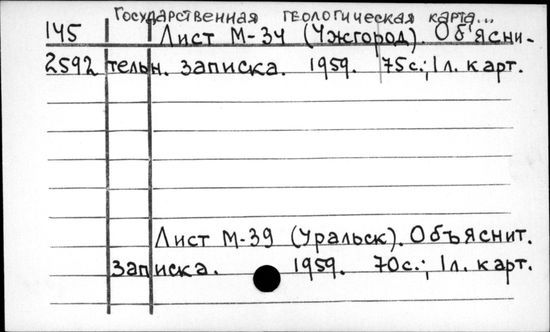 Государственная геологическая карта...
145 Лист М-34 (Ужгород). Объясни-
2592 тельн. записка. 1959. 75с.; 1л. карт.
Лист М-39 (Уральск). Объяснит.
записка. 1959. 70с.; 1л. карт.